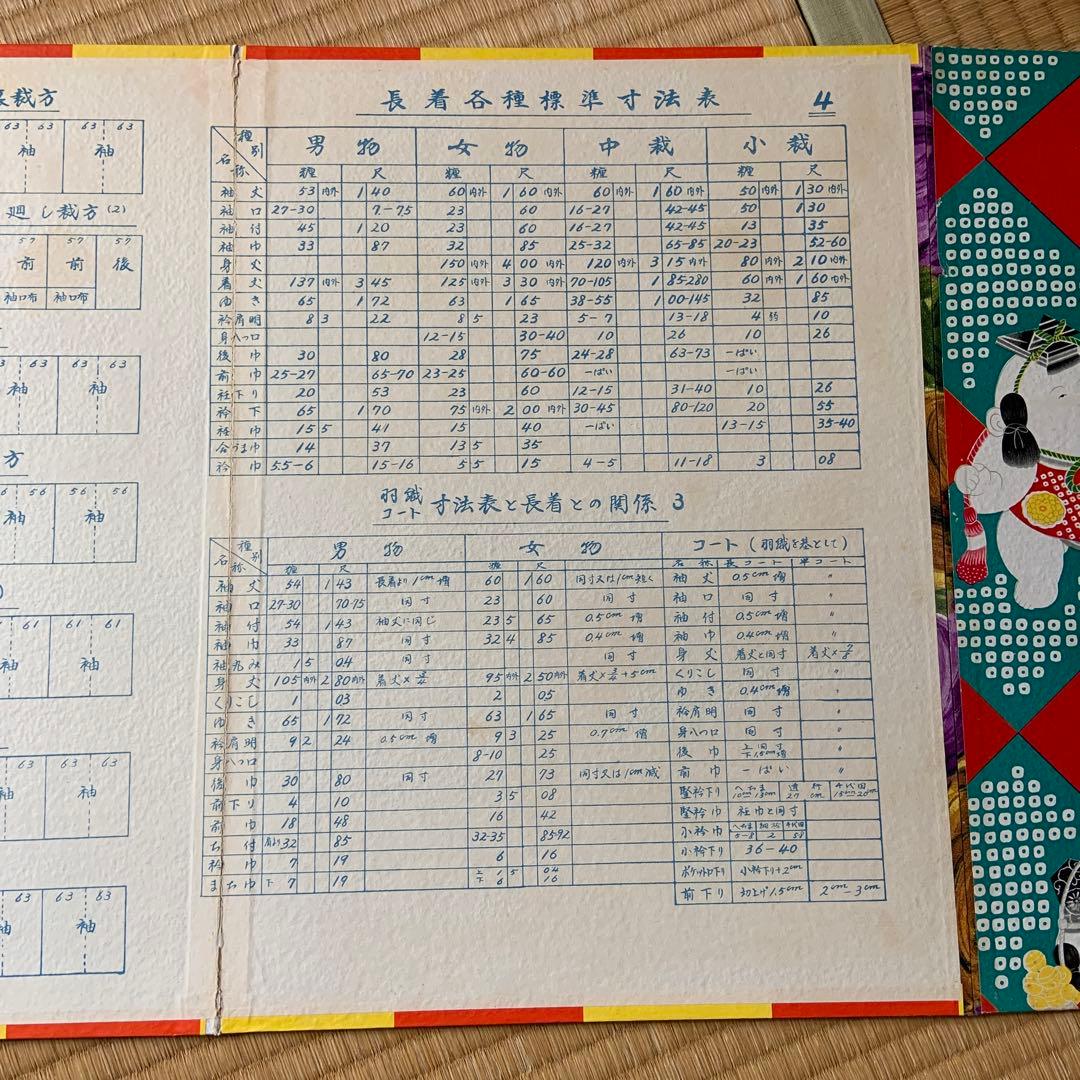 裁方
63 63 63 63
袖 袖
廻し裁方(2)
57 57 57
前 前 後
袖口布 袖口布
63 63 63
袖 袖
方
56 56 56
袖 袖
61 61 61
袖
63 63 63
袖
63 63 63
袖
長着各種標準寸法表 4
種別 名称 男物 女物 中裁 小裁
糎 尺 糎 尺 糎 尺 糎 尺
袖丈 53内外 1 40 60内外 1 60内外 60内外 1 60内外 50内外 1 30内外
袖口 27-30 7-75 23 60 16-27 42-45 50 1 30
袖付 45 1 20 23 60 16-27 42-45 13 35
袖巾 33 87 32 85 25-32 65-85 20-23 52-60
身丈 150内外 4 00内外 120内外 3 15内外 80内外 2 10内外
着丈 137内外 3 45 125内外 3 30内外 70-105 1 85-280 60内外 1 60内外
ゆき 65 1 72 63 1 65 38-55 1 00-145 32 85
衿肩明 8 3 22 8 5 23 5-7 13-18 4 10
身八つ口 12-15 30-40 10 26 10 26
後巾 30 80 28 75 24-28 63-73 一ぱい
前巾 25-27 65-70 23-25 60-60 一ぱい 一ぱい
衽下り 20 53 23 60 12-15 31-40 10 26
衿下 65 1 70 75内外 2 00内外 30-45 80-120 20 55
衽巾 15 5 41 15 40 一ぱい 13-15 35-40
合づま巾 14 37 13 5 35
衿巾 5.5-6 15-16 5 5 15 4-5 11-18 3 08
羽織コート寸法表と長着との関係 3
種別 名称 男物 女物 コート(羽織を基として)
糎 尺 糎 尺 名称 長コート 半コート
袖丈 54 1 43 長着より1cm増 60 1 60 同寸又は1cm短く 袖丈 0.5cm増 〃
袖口 27-30 70-75 同寸 23 60 同寸 袖口 同寸 〃
袖付 54 1 43 袖丈に同じ 23 5 65 0.5cm増 袖付 0.5cm増 〃
袖巾 33 87 同寸 32 4 85 0.4cm増 袖巾 0.4cm増 〃
袖丸み 1 5 04 同寸 同寸 身丈 着丈と同寸 着丈×7/8
身丈 105内外 2 80内外 着丈×3/4 95内外 2 50内外 着丈×3/4+5cm くりこし 同寸 〃
くりこし 1 03 2 05 ゆき 0.4cm増 〃
ゆき 65 1 72 同寸 63 1 65 同寸 衿肩明 同寸 〃
衿肩明 9 2 24 0.5cm増 9 3 25 0.7cm増 身八つ口 同寸 〃
身八つ口 8-10 25 後巾 上同寸 下1.5cm増 〃
後巾 30 80 同寸 27 73 同寸又は1cm減 前巾 一ぱい 〃
前下り 4 10 3 5 08 竪衿下り
前巾 18 48 16 42 竪衿巾 衽巾と同寸
ち付 肩より32 85 32-35 85-92 小衿巾 5-8 2 58
衿巾 7 19 6 16 小衿下り 36-40
まち巾 下 7 19 上 1 5 04 下 6 16 ポケット口下り 小衿下り+2cm
前下り 切上げ1.5cm 2cm-3cm